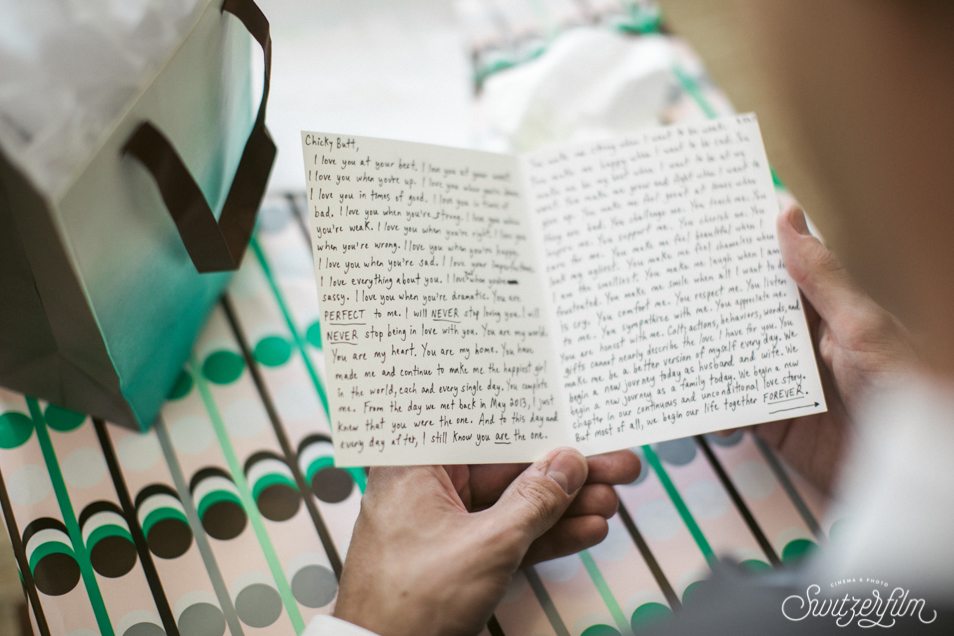 Chicky Butt,
I love you at your best. I love you at your worst.
I love you when you're up. I love you when you're down.
I love you in times of good. I love you in times of
bad. I love you when you're strong. I love you when
you're weak. I love you when you're right. I love you
when you're wrong. I love you when you're happy.
I love you when you're sad. I love your imperfections.
I love everything about you. I love when you're
sassy. I love you when you're dramatic. You are
PERFECT to me. I will NEVER stop loving you. I will
NEVER stop being in love with you. You are my world.
You are my heart. You are my home. You have
made me and continue to make me the happiest girl
in the world, each and every single day. You complete
me. From the day we met back in May 2013, I just
knew that you were the one. And to this day and
every day after, I still know you are the one.
You make me strong when I want to be weak. You
make me happy when I want to be sad. You
make me be my best when I want to be at my
worst. You make me
give up. You make me feel great at times when
they are bad. You challenge me. You teach me. You
inspire me. You support me. You cherish me. You
care for me. You make me feel beautiful when I
look my ugliest. You make me feel shameless when
I am the smelliest. You make me laugh when I am
frustrated. You make me smile when all I want to do
is cry. You comfort me. You respect me. You listen
to me. You sympathize with me. You appreciate me.
You are honest with me. Colt, actions, behaviors, words, and
gifts cannot nearly describe the love I have for you. You
make me be a better version of myself every day. We
begin a new journey today as husband and wife. We
begin a new journey as a family today. We begin a new
chapter in our continuous and unconditional love story.
But most of all, we begin our life together FOREVER.
CINEMA & PHOTO
Switzerfilm